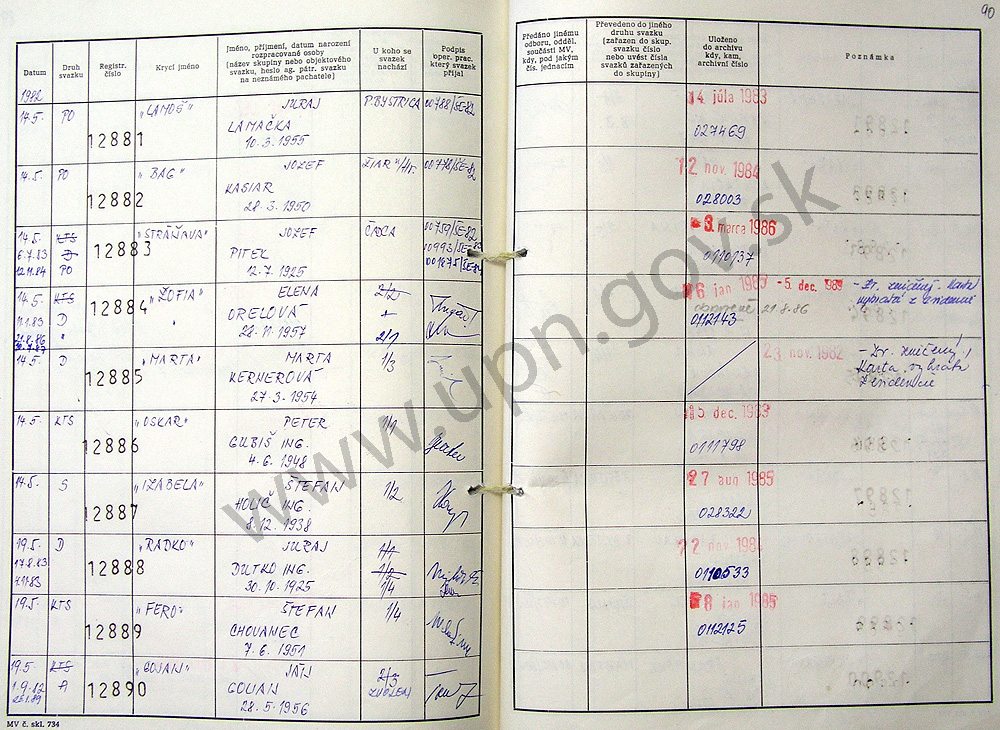 90
Datum
Druh svazku
Registr. číslo
Krycí jméno
Jméno, příjmení, datum narození
rozpracované osoby
(název skupiny nebo objektového
svazku, heslo ag. pátr. svazku
na neznámého pachatele)
U koho se
svazek
nachází
Podpis
oper. prac.
který svazek
přijal
Předáno jinému
odboru, odděl.
součásti MV,
kdy, pod jakým
čís. jednacím
Převedeno do jiného
druhu svazku
(zařazen do skup.
svazku číslo
nebo uvést čísla
svazků zařazených
do skupiny)
Uloženo
do archívu
kdy, kam,
archivní číslo
Poznámka
1982
14.5. PO 12881 "LAMOŠ" JURAJ P.BYSTRICA 00788/SE-82 14 júla 1983
LAMAČKA 027469
10.3.1955
14.5. PO 12882 "BAG" JOZEF ŽIAR n/Hr. 00778/SE-82 12 nov. 1984
KASIAR 028003
28.3.1950
14.5. KTS 12883 "STRÁŇAVA" JOZEF ČADCA 00759/SE-82 3. marca 1986
6.7.83 D PITEL 00993/SE-83 0110137
12.11.84 PO 12.7.1925 001675/SE-84
14.5. KTS 12884 "ŽOFIA" ELENA 2/2 -5. dec. 1989 - Zv. zničený. Karta
11.1.83 D " ORELOVÁ obnovené 21.8.86 vybratá z evidencie
21.8.86 " 28.11.1957 2/1 0112143
14.5. D 12885 "MARTA" MARTA 1/3 23 nov. 1982 - Zv. zničený!
KERNEROVÁ Karta vybratá
27.3.1954 z evidencie
14.5. KTS 12886 "OSKAR" PETER 1/1 5. dec. 1983
GUBIŠ ING. 0111798
4.6.1948
14.5. S 12887 "IZABELA" ŠTEFAN 1/2 27 aug 1985
HOLIČ ING. 028322
8.12.1938
19.5. D 12888 "RADKO" JURAJ 1/1 12 nov. 1984
17.8.83 DUTKO ING. 1/2 0110533
4.11.83 30.10.1925 1/4
19.5. KTS 12889 "FERO" ŠTEFAN 1/4 8 jan 1985
CHOVANEC 0112125
7.6.1951
19.5. KTS 12890 "GOJAN" JÁN 2/3
1.9.82 A GOLIAN ZVOLEN
28.5.1956
MV č. skl. 734
www.upn.gov.sk